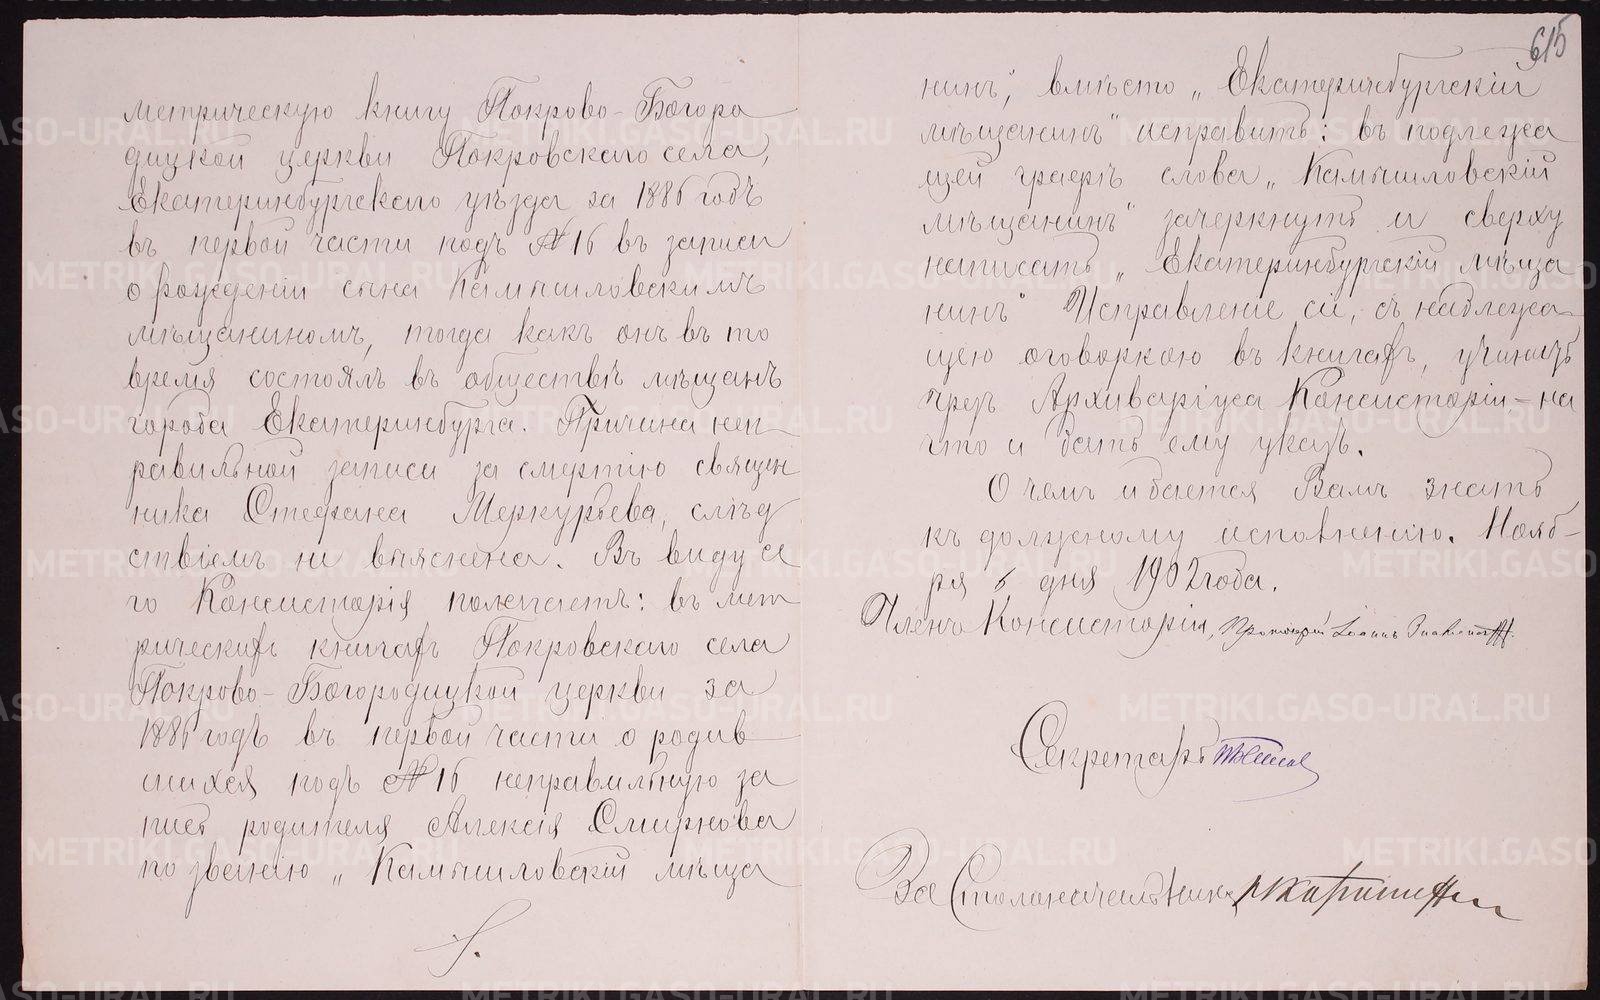 615
метрическую книгу Покрово-Богоро
дицкой церкви Покровскаго села,
Екатеринбургскаго уѣзда за 1886 годъ
въ первой части подъ № 16 въ записи
о рожденіи сына Камышловскимъ
мѣщаниномъ, тогда какъ онъ въ то
время состоялъ въ обществѣ мѣщанъ
города Екатеринбурга. Причина неп
равильной записи за смертію священ
ника Стефана Меркурьева, слѣд
ствіемъ не выяснена. Въ виду се
го Консисторія полагаетъ: въ мет
рическихъ книгахъ Покровскаго села
Покрово-Богородицкой церкви за
1886 годъ въ первой части о родив
шихся подъ № 16 неправильную за
пись родителя Алексія Смирнова
по званію „Камышловскій мѣща
нинъ", вмѣсто „Екатеринбургскій
мѣщанинъ" исправить: въ подлежа
щей графѣ слова „Камышловскій
мѣщанинъ" зачеркнуть и сверху
написать „Екатеринбургскій мѣща
нинъ" Исправленіе сіе, съ надлежа
щею оговоркою въ книгахъ, учинить
чрезъ Архиваріуса Консисторіи - на
что и дать ему указъ.
О чемъ и дается Вамъ знать
къ должному исполненію. Нояб-
ря 6 дня 1902 года.
Членъ Консисторіи, Протоіерей Іоаннъ
Секретарь
За Столоначальника
METRIKI.GASO-URAL.RU